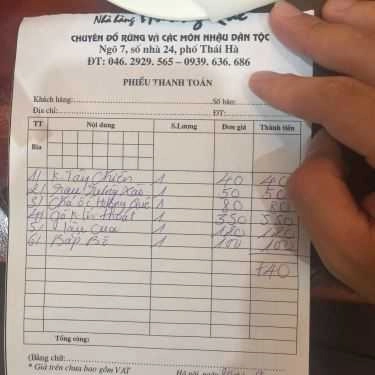 Nhà hàng
CHUYÊN ĐỒ RỪNG VÀ CÁC MÓN NHẬU DÂN TỘC
Ngõ 7, số nhà 24, phố Thái Hà
ĐT: 046. 2929. 565 – 0939. 636. 686
PHIẾU THANH TOÁN
Khách hàng: Số bàn:
Địa chỉ: ĐT:
TT Nội dung S.Lượng Đơn giá Thành tiền
Bia
1/ K Tây Chiên 1 40 40
2/ Rau Rừng Xào 1 50 50
3/ Chả ốc Hương Quê 1 80 80
4/ Gà 1 350 350
5/ 1 120 120
6/ Bắp Bê 1 100 100
740
Tổng cộng:
(Bằng chữ:
* Giá trên chưa bao gồm VAT Hà nội, ngày